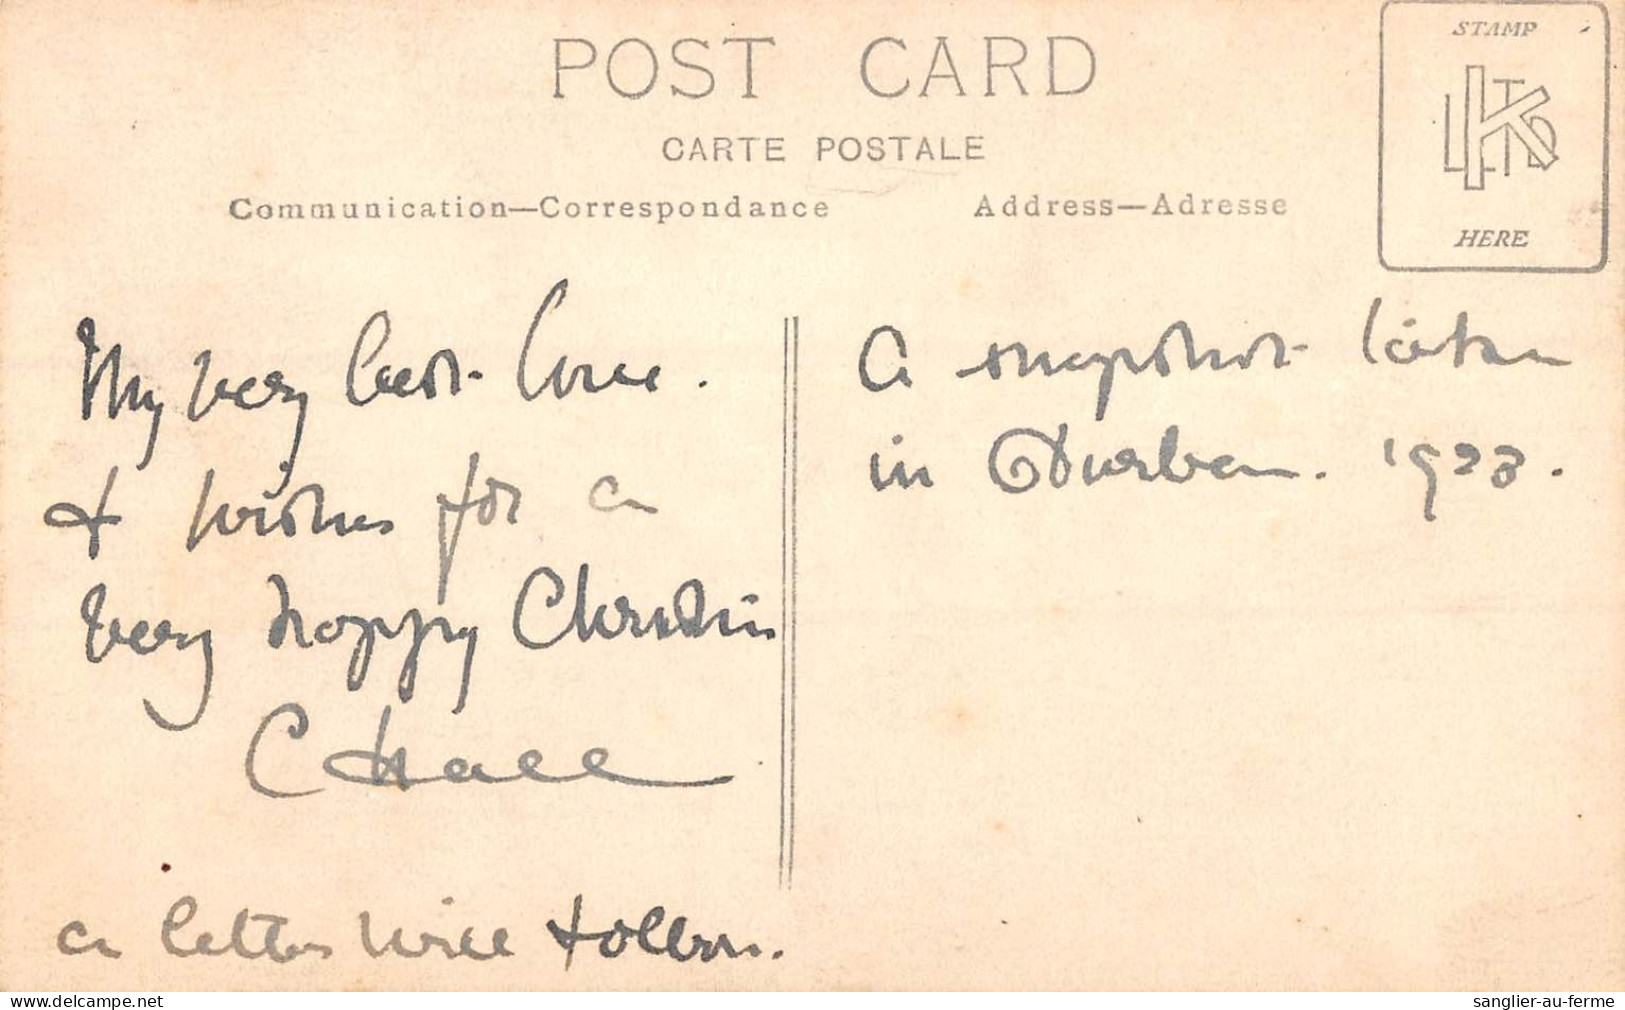 POST CARD
CARTE POSTALE
Communication—Correspondance
Address—Adresse
STAMP
K LTD
HERE
My very best love.
& wishes for a
very happy Christms
a letter will follow.
A snapshot taken
in Durban. 1923.
delcampe.net
sanglier-au-ferme